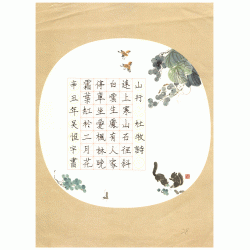 山行 杜牧詩
遠上寒山石徑斜
白雲生處有人家
停車坐愛楓林晚
霜葉紅於二月花
辛丑年吳恆宇書